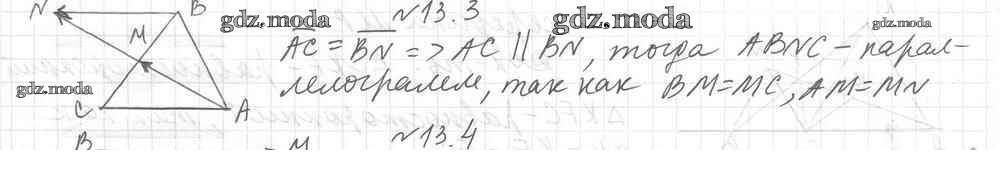 N B №13.3
gdz.moda gdz.moda gdz.moda
M AC = BN => AC || BN, тогда ABNC - парал-
gdz.moda лелограмм, так как BM=MC, AM=MN
C A
B M №13.4